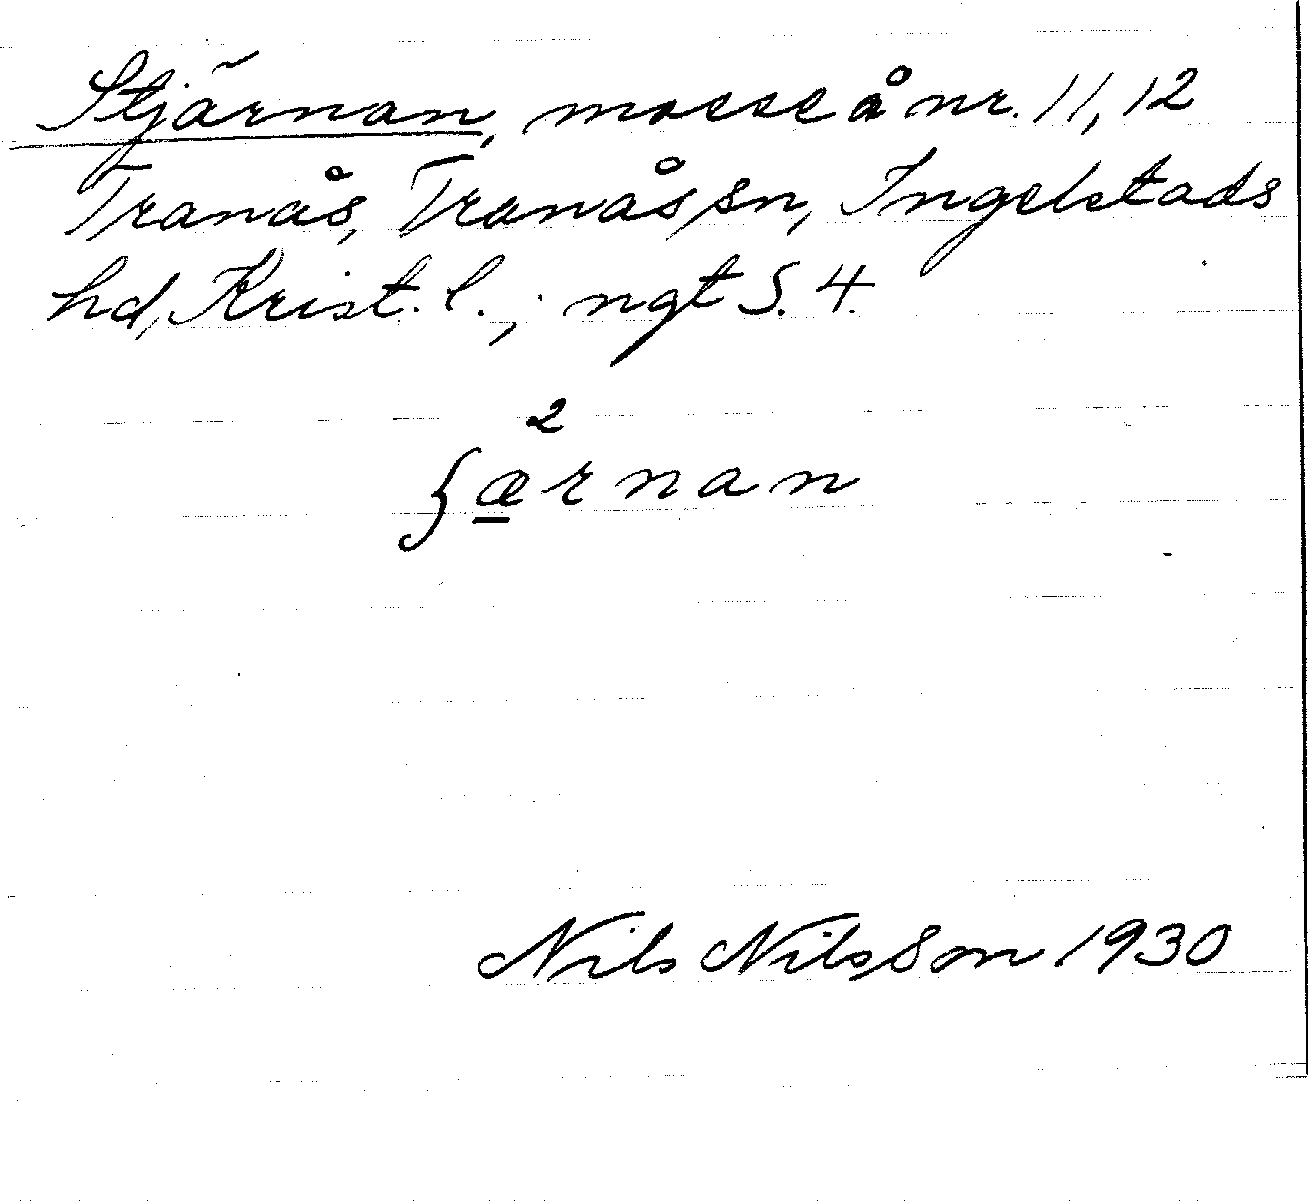 Stjärnan, mosse å nr. 11, 12
Tranås, Tranås sn, Ingelstads
hd, Krist. l.; ngt S. 4.
2
ʃærnan
Nils Nilsson 1930